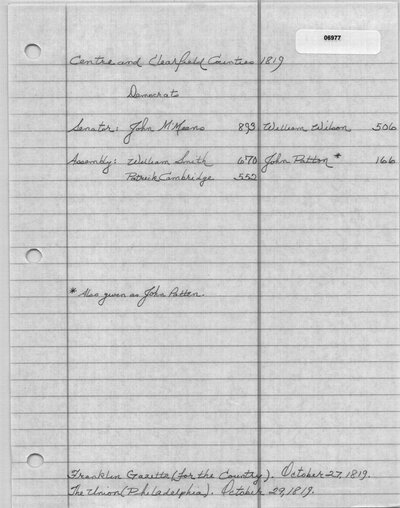 06977
Centre and Clearfield Counties 1819
Democrats
Senator: John McMeens 893 William Wilson 506
Assembly: William Smith 670 John Patton * 166
Patrick Cambridge 552
* Also given as John Patten.
Franklin Gazette (for the Country). October 27, 1819.
The Union (Philadelphia). October 29, 1819.